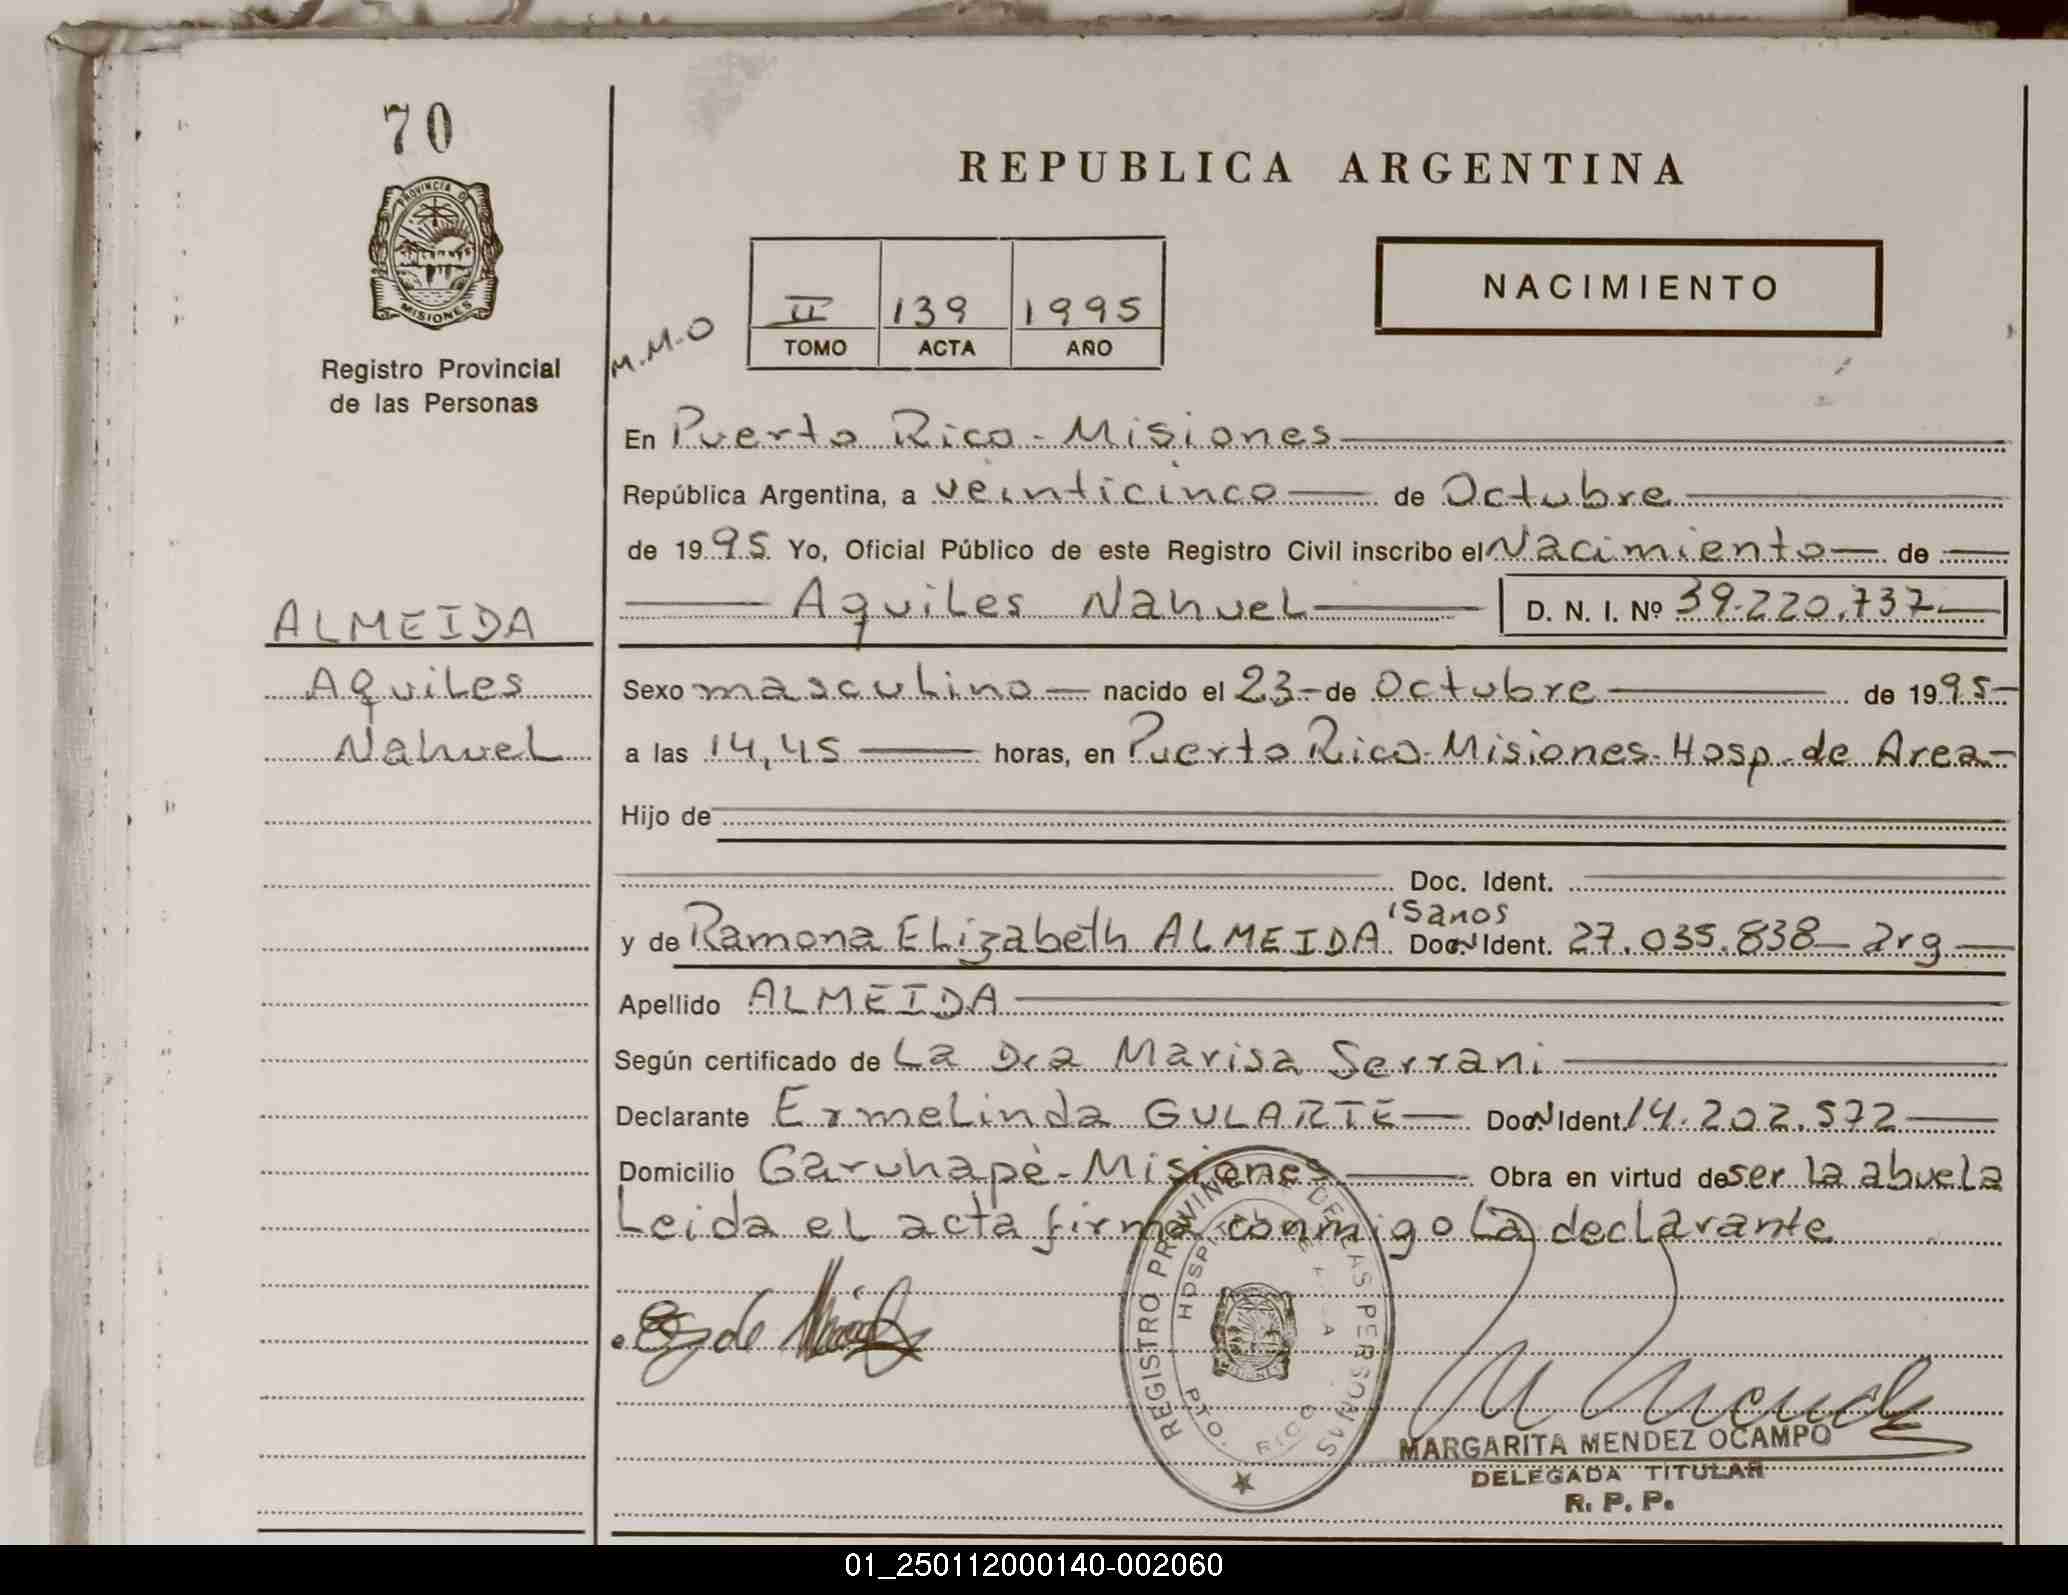 70
PROVINCIA D
MISIONES
Registro Provincial
de las Personas
REPUBLICA ARGENTINA
II 139 1995
TOMO ACTA AÑO
NACIMIENTO
M.M.O
En Puerto Rico - Misiones
República Argentina, a veinticinco de Octubre
de 1995 Yo, Oficial Público de este Registro Civil inscribo el Nacimiento de
Aquiles Nahuel D. N. I. Nº 39.220.737
ALMEIDA
Aquiles
Nahuel
Sexo masculino nacido el 23 de Octubre de 1995
a las 14,45 horas, en Puerto Rico-Misiones-Hosp. de Area
Hijo de
Doc. Ident.
15 anos
y de Ramona Elizabeth ALMEIDA Doc. Ident. 27.035.838 arg
Apellido ALMEIDA
Según certificado de La Dra Marisa Serrani
Declarante Ermelinda GULARTE Doc. Ident. 14.202.572
Domicilio Garuhapé-Misiones Obra en virtud de ser la abuela
Leida el acta firma conmigo la declarante
REGISTRO PROVINCIAL DE LAS PERSONAS
HOSPITAL DE AREA
PTO. RICO
MARGARITA MENDEZ OCAMPO
DELEGADA TITULAR
R. P. P.
01_250112000140-002060